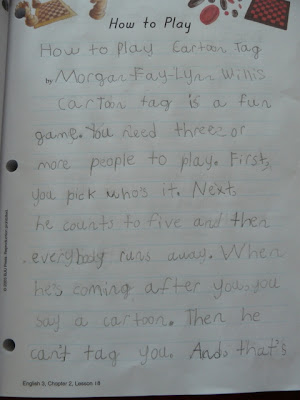 How to Play
How to Play Cartoon Tag
by Morgan-Fay-Lynn Willis
Cartoon tag is a fun
game. You need three or
more people to play. First,
you pick who's it. Next,
he counts to five and then
everybody runs away. When
he's coming after you, you
say a cartoon. Then he
can't tag you. And that's
English 3, Chapter 2, Lesson 18